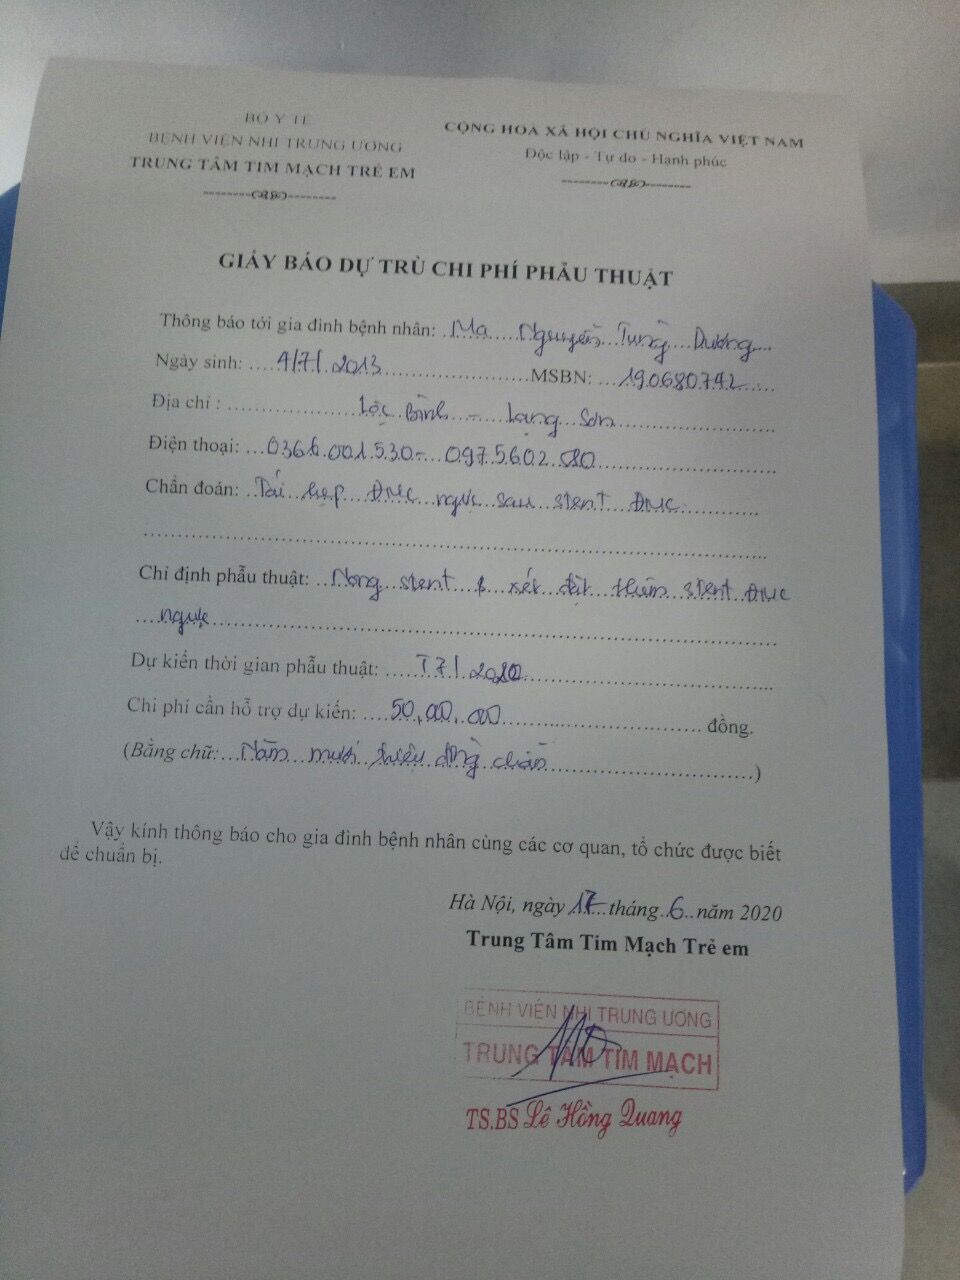 BỘ Y TẾ
BỆNH VIỆN NHI TRUNG ƯƠNG
TRUNG TÂM TIM MẠCH TRẺ EM
CỘNG HOÀ XÃ HỘI CHỦ NGHĨA VIỆT NAM
Độc lập - Tự do - Hạnh phúc
GIẤY BÁO DỰ TRÙ CHI PHÍ PHẪU THUẬT
Thông báo tới gia đình bệnh nhân: Ma Nguyễn Tùng Dương
Ngày sinh: 4/7/2013 MSBN: 190680742
Địa chỉ : Lộc Bình - Lạng Sơn
Điện thoại: 0366.001.530 - 0975.602.080
Chẩn đoán: Tái hẹp ĐMC ngực sau stent ĐMC
Chỉ định phẫu thuật: Nong stent & xét đặt thêm stent ĐMC
ngực
Dự kiến thời gian phẫu thuật: T7/2020
Chi phí cần hỗ trợ dự kiến: 50,000,000 đồng.
(Bằng chữ: Năm mươi triệu đồng chẵn)
Vậy kính thông báo cho gia đình bệnh nhân cùng các cơ quan, tổ chức được biết
để chuẩn bị.
Hà Nội, ngày 17 tháng 6 năm 2020
Trung Tâm Tim Mạch Trẻ em
BỆNH VIỆN NHI TRUNG ƯƠNG
TRUNG TÂM TIM MẠCH
TS.BS Lê Hồng Quang